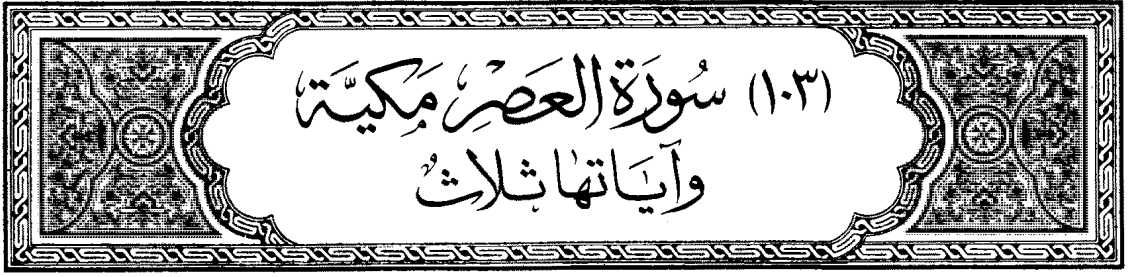 (١٠٣) سُورَة العَصْرِ مَكيَّة
وآيَاتها ثلاثٌ